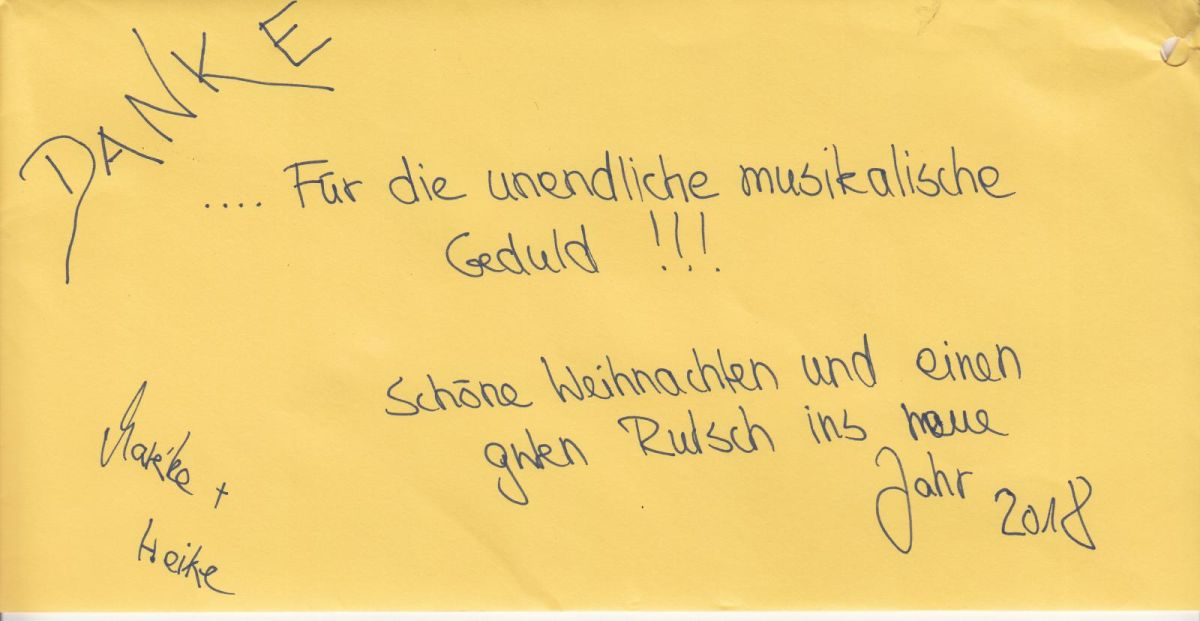 DANKE
.... Für die unendliche musikalische
Geduld !!!
Schöne Weihnachten und einen
guten Rutsch ins neue
Jahr 2018
+
Heike